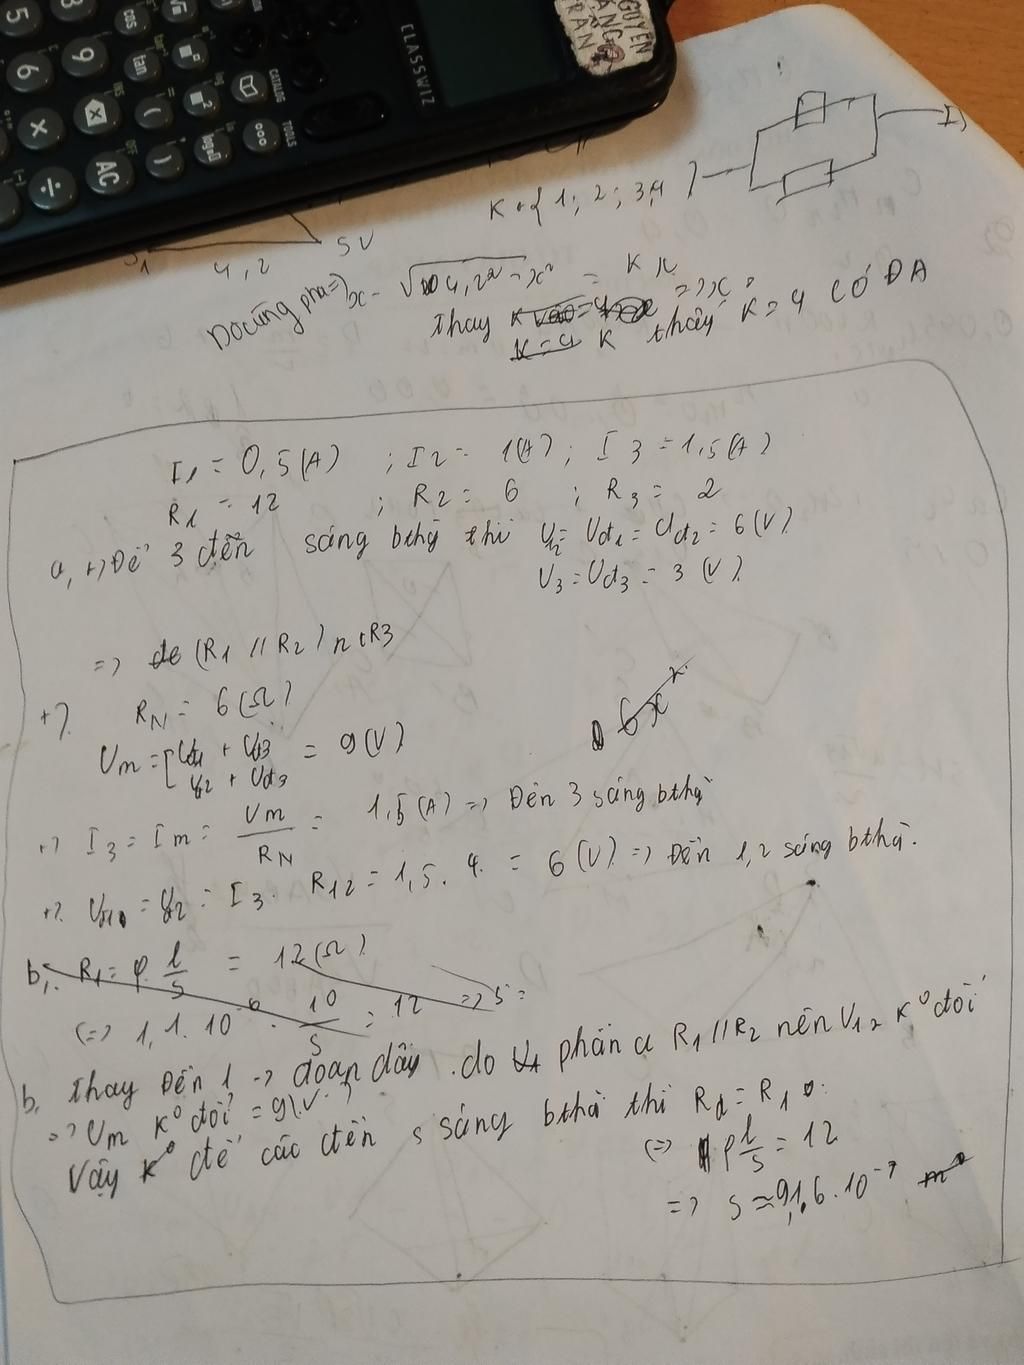 CLASSWIZ
NGUYEN
TRAN
5
6
9
cos
tan
INS
CATALOG
TOOLS
OFF
AC
×
÷
(
)
K ∈ { 1; 2; 3; 4 }
I)
S1
4,2
5V
Dờ cùng pha =) x - √4,2² - x² = K λ
thay K => x
K=4 K thấy K = 4 có ĐA
I1 = 0,5 (A) ; I2 = 1(A) ; I3 = 1,5 (A)
R1 = 12 ; R2 = 6 ; R3 = 2
a, +) Để 3 đèn sáng bthg thì U12 = Uđ1 = Uđ2 = 6 (V)
U3 = Uđ3 = 3 (V)
=> (R1 // R2) nt R3
+) RN = 6 (Ω)
6x²
Um = [ Uđ1 + Uđ3 = 9 (V)
U2 + Uđ3
+) I3 = Im = Um / RN = 1,5 (A) => Đèn 3 sáng bthg
+) = U2 = I3 . R12 = 1,5 . 4 = 6 (V) => Đèn 1,2 sáng bthg.
b, R1 = ρ. l/S = 12 (Ω)
(=> 1,1. 10^-6 . 10/S = 12 => S =
b, thay Đèn 1 -> đoạn dây . do phần a R1 // R2 nên U12 K° đổi
=> Um K° đổi = 9(V)
Vậy để các đèn sáng bthg thì Rd = R1
(=> ρ l/S = 12
=> S ≈ 91,6 . 10^-7 m